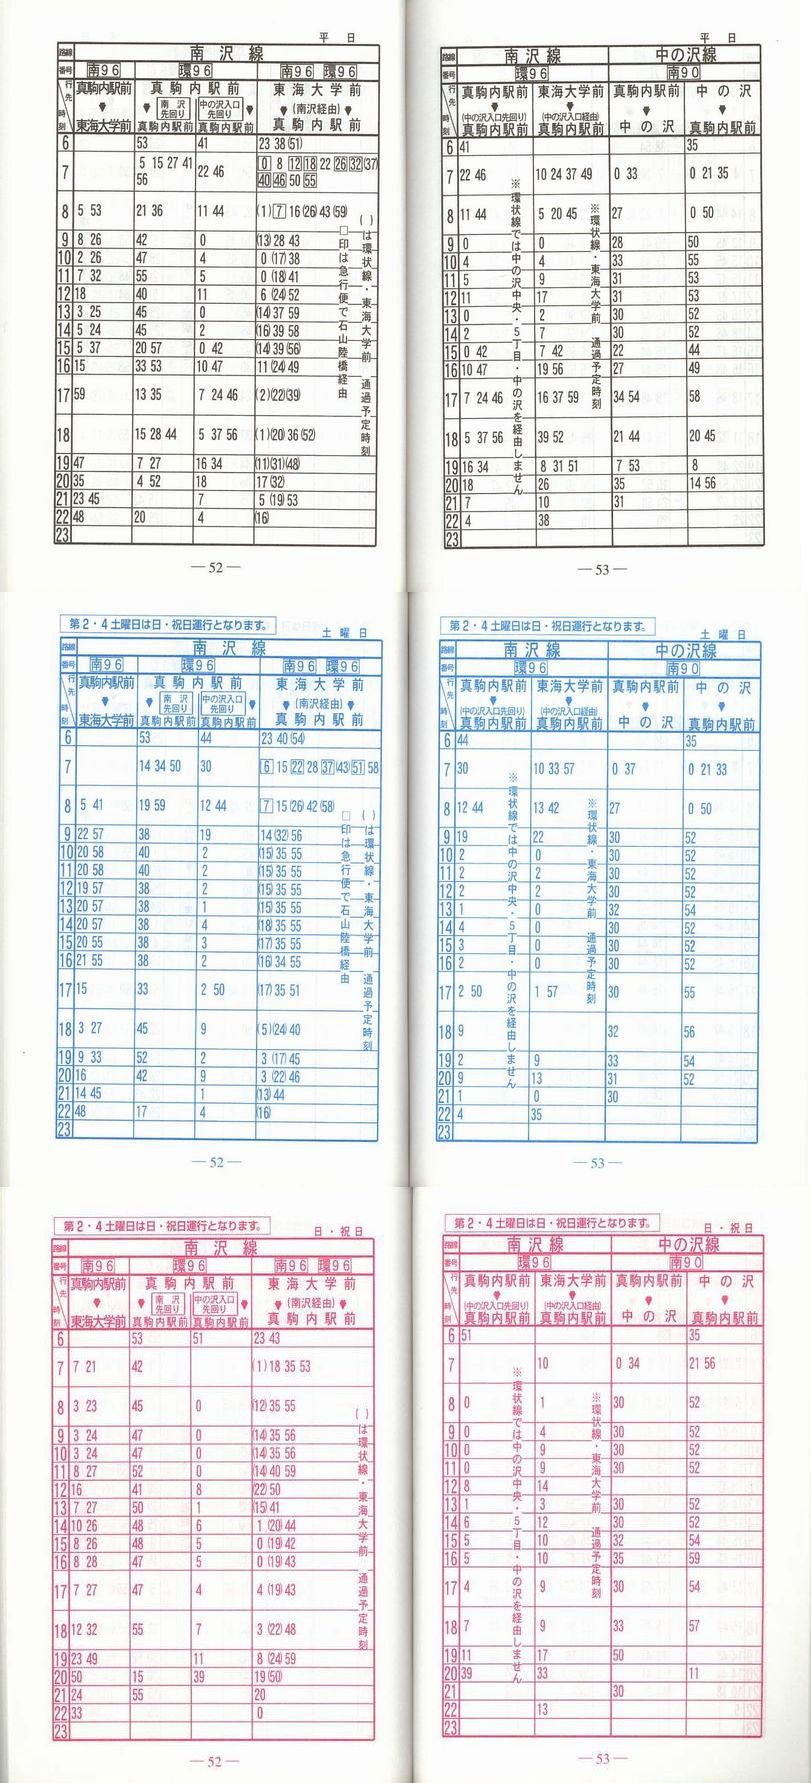 平 日
路線 南 沢 線
番号 南96 環96 南96 環96
行先 時刻 真駒内駅前 東海大学前 真 駒 内 駅 前 南 沢 先回り 真駒内駅前 中の沢入口 先回り 真駒内駅前 東 海 大 学 前 (南沢経由) 真 駒 内 駅 前
6 53 41 23 38 (51)
7 5 15 27 41 56 22 46 0 8 12 18 22 26 32 (37) 40 46 50 55
8 5 53 21 36 11 44 (1) 7 16 (26) 43 (59)
9 8 26 42 0 (13) 28 43
10 2 26 47 4 0 (17) 38
11 7 32 55 5 0 (18) 41
12 18 40 11 6 (24) 52
13 3 25 45 0 (14) 37 59
14 5 24 45 2 (16) 39 58
15 5 37 20 57 0 42 (14) 39 (56)
16 15 33 53 10 47 11 (24) 49
17 59 13 35 7 24 46 (2) (22) (39)
18 15 28 44 5 37 56 (1) (20) 36 (52)
19 47 7 27 16 34 (11) (31) (48)
20 35 4 52 18 17 (32)
21 23 45 7 5 (19) 53
22 48 20 4 (16)
23
( )は環状線・東海大学前 通過予定時刻
□印は急行便で石山陸橋経由
— 52 —
平 日
路線 南 沢 線 中の沢線
番号 環96 南90
行先 時刻 真駒内駅前 (中の沢入口先回り) 真駒内駅前 東海大学前 (中の沢入口経由) 真駒内駅前 真駒内駅前 中 の 沢 中 の 沢 真駒内駅前
6 41 35
7 22 46 10 24 37 49 0 33 0 21 35
8 11 44 5 20 45 27 0 50
9 0 0 28 50
10 4 4 33 55
11 5 9 31 53
12 11 17 31 53
13 0 2 30 52
14 2 7 30 52
15 0 42 7 42 22 44
16 10 47 19 56 27 49
17 7 24 46 16 37 59 34 54 58
18 5 37 56 39 52 21 44 20 45
19 16 34 8 31 51 7 53 8
20 18 26 35 14 56
21 7 10 31
22 4 38
23
※環状線では中の沢中央・5丁目・中の沢を経由しません
※環状線・東海大学前 通過予定時刻
— 53 —
第2・4土曜日は日・祝日運行となります。
土 曜 日
路線 南 沢 線
番号 南96 環96 南96 環96
行先 時刻 真駒内駅前 東海大学前 真 駒 内 駅 前 南 沢 先回り 真駒内駅前 中の沢入口 先回り 真駒内駅前 東 海 大 学 前 (南沢経由) 真 駒 内 駅 前
6 53 44 23 40 (54)
7 14 34 50 30 6 15 22 28 37 (43) 51 58
8 5 41 19 59 12 44 7 15 (26) 42 (58)
9 22 57 38 19 14 (32) 56
10 20 58 40 2 (15) 35 55
11 20 58 40 2 (15) 35 55
12 19 57 38 2 (15) 35 55
13 20 57 38 1 (15) 35 55
14 20 57 38 4 (18) 35 55
15 20 55 38 3 (17) 35 55
16 21 55 38 2 (16) 34 55
17 15 33 2 50 (17) 35 51
18 3 27 45 9 (5) (24) 40
19 9 33 52 2 3 (17) 45
20 16 42 9 3 (22) 46
21 14 45 1 (13) 44
22 48 17 4 (16)
23
( )は環状線・東海大学前 通過予定時刻
□印は急行便で石山陸橋経由
— 52 —
第2・4土曜日は日・祝日運行となります。
土 曜 日
路線 南 沢 線 中の沢線
番号 環96 南90
行先 時刻 真駒内駅前 (中の沢入口先回り) 真駒内駅前 東海大学前 (中の沢入口経由) 真駒内駅前 真駒内駅前 中 の 沢 中 の 沢 真駒内駅前
6 44 35
7 30 10 33 57 0 37 0 21 33
8 12 44 13 42 27 0 50
9 19 22 30 52
10 2 0 30 52
11 2 2 30 52
12 2 2 30 52
13 1 0 32 54
14 4 0 30 52
15 3 0 30 52
16 2 0 30 52
17 2 50 1 57 30 55
18 9 32 56
19 2 9 33 54
20 9 13 31 52
21 1 0 30
22 4 35
23
※環状線では中の沢中央・5丁目・中の沢を経由しません
※環状線・東海大学前 通過予定時刻
— 53 —
第2・4土曜日は日・祝日運行となります。
日・祝日
路線 南 沢 線
番号 南96 環96 南96 環96
行先 時刻 真駒内駅前 東海大学前 真 駒 内 駅 前 南 沢 先回り 真駒内駅前 中の沢入口 先回り 真駒内駅前 東 海 大 学 前 (南沢経由) 真 駒 内 駅 前
6 53 51 23 43
7 7 21 42 (1) 18 35 53
8 3 23 45 0 (12) 35 55
9 3 24 47 0 (14) 35 56
10 3 24 47 0 (14) 35 56
11 8 27 52 0 (14) 40 59
12 16 41 8 (22) 50
13 7 27 50 1 (15) 41
14 10 26 48 6 1 (20) 44
15 8 26 48 5 0 (19) 42
16 8 28 47 5 0 (19) 43
17 7 27 47 4 4 (19) 43
18 12 32 55 7 3 (22) 48
19 23 49 11 8 (24) 59
20 50 15 39 19 (50)
21 24 55 20
22 33 0
23
( )は環状線・東海大学前 通過予定時刻
— 52 —
第2・4土曜日は日・祝日運行となります。
日・祝日
路線 南 沢 線 中の沢線
番号 環96 南90
行先 時刻 真駒内駅前 (中の沢入口先回り) 真駒内駅前 東海大学前 (中の沢入口経由) 真駒内駅前 真駒内駅前 中 の 沢 中 の 沢 真駒内駅前
6 51 35
7 10 0 34 21 56
8 0 1 30 52
9 0 4 30 52
10 0 9 30 52
11 0 9 30 52
12 8 14
13 1 3 30 52
14 6 12 30 52
15 5 10 32 54
16 5 10 35 59
17 4 9 30 54
18 7 9 33 57
19 11 17 50
20 39 33 11
21 30
22 13
23
※環状線では中の沢中央・5丁目・中の沢を経由しません
※環状線・東海大学前 通過予定時刻
— 53 —